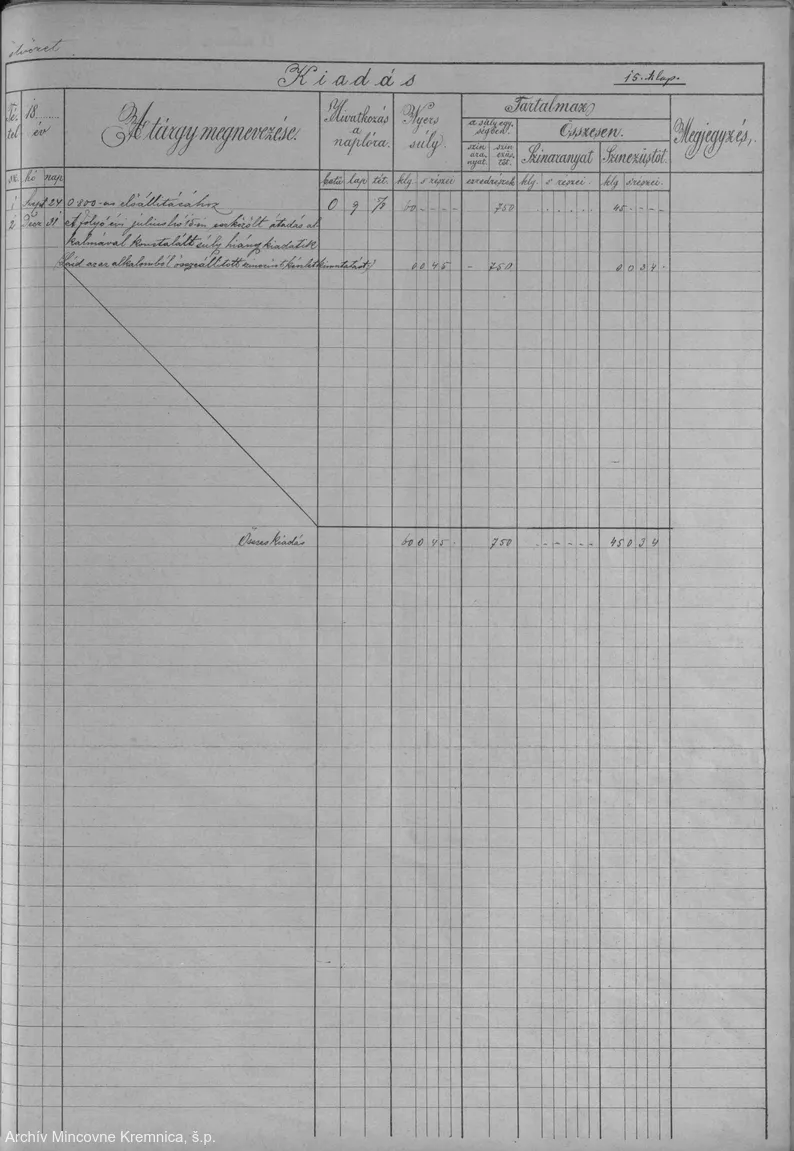 ötvözet
Kiadás
15. lap.
Tétel
18 év
A tárgy megnevezése.
Hivatkozás a naplóra.
Nyers súly.
Tartalmaz
a súly egységben.
Összesen.
szín aranyat.
szín ezüstöt.
Színaranyat
Színezüstöt.
Megjegyzés.
sz. hó nap
betű lap tét. klg s részei ezredrészek klg. s részei. klg s részei.
1 Sept 24 0 800-as előállításához 0 9 60 - - - - 750 . . . . . 45 - - - -
2 Decz 31 A folyó évi július hó 15-én eszközölt átadás al-
kalmával konstatált súly hiány kiadatik
(Lásd az az alkalomból összeállított szerinti készletkimutatást) 0 0 4 5 - 750 0 0 3 4 .
Összes kiadás 60 0 4 5 . 750 . - - - - 45 0 3 4
Archív Mincovne Kremnica, š.p.